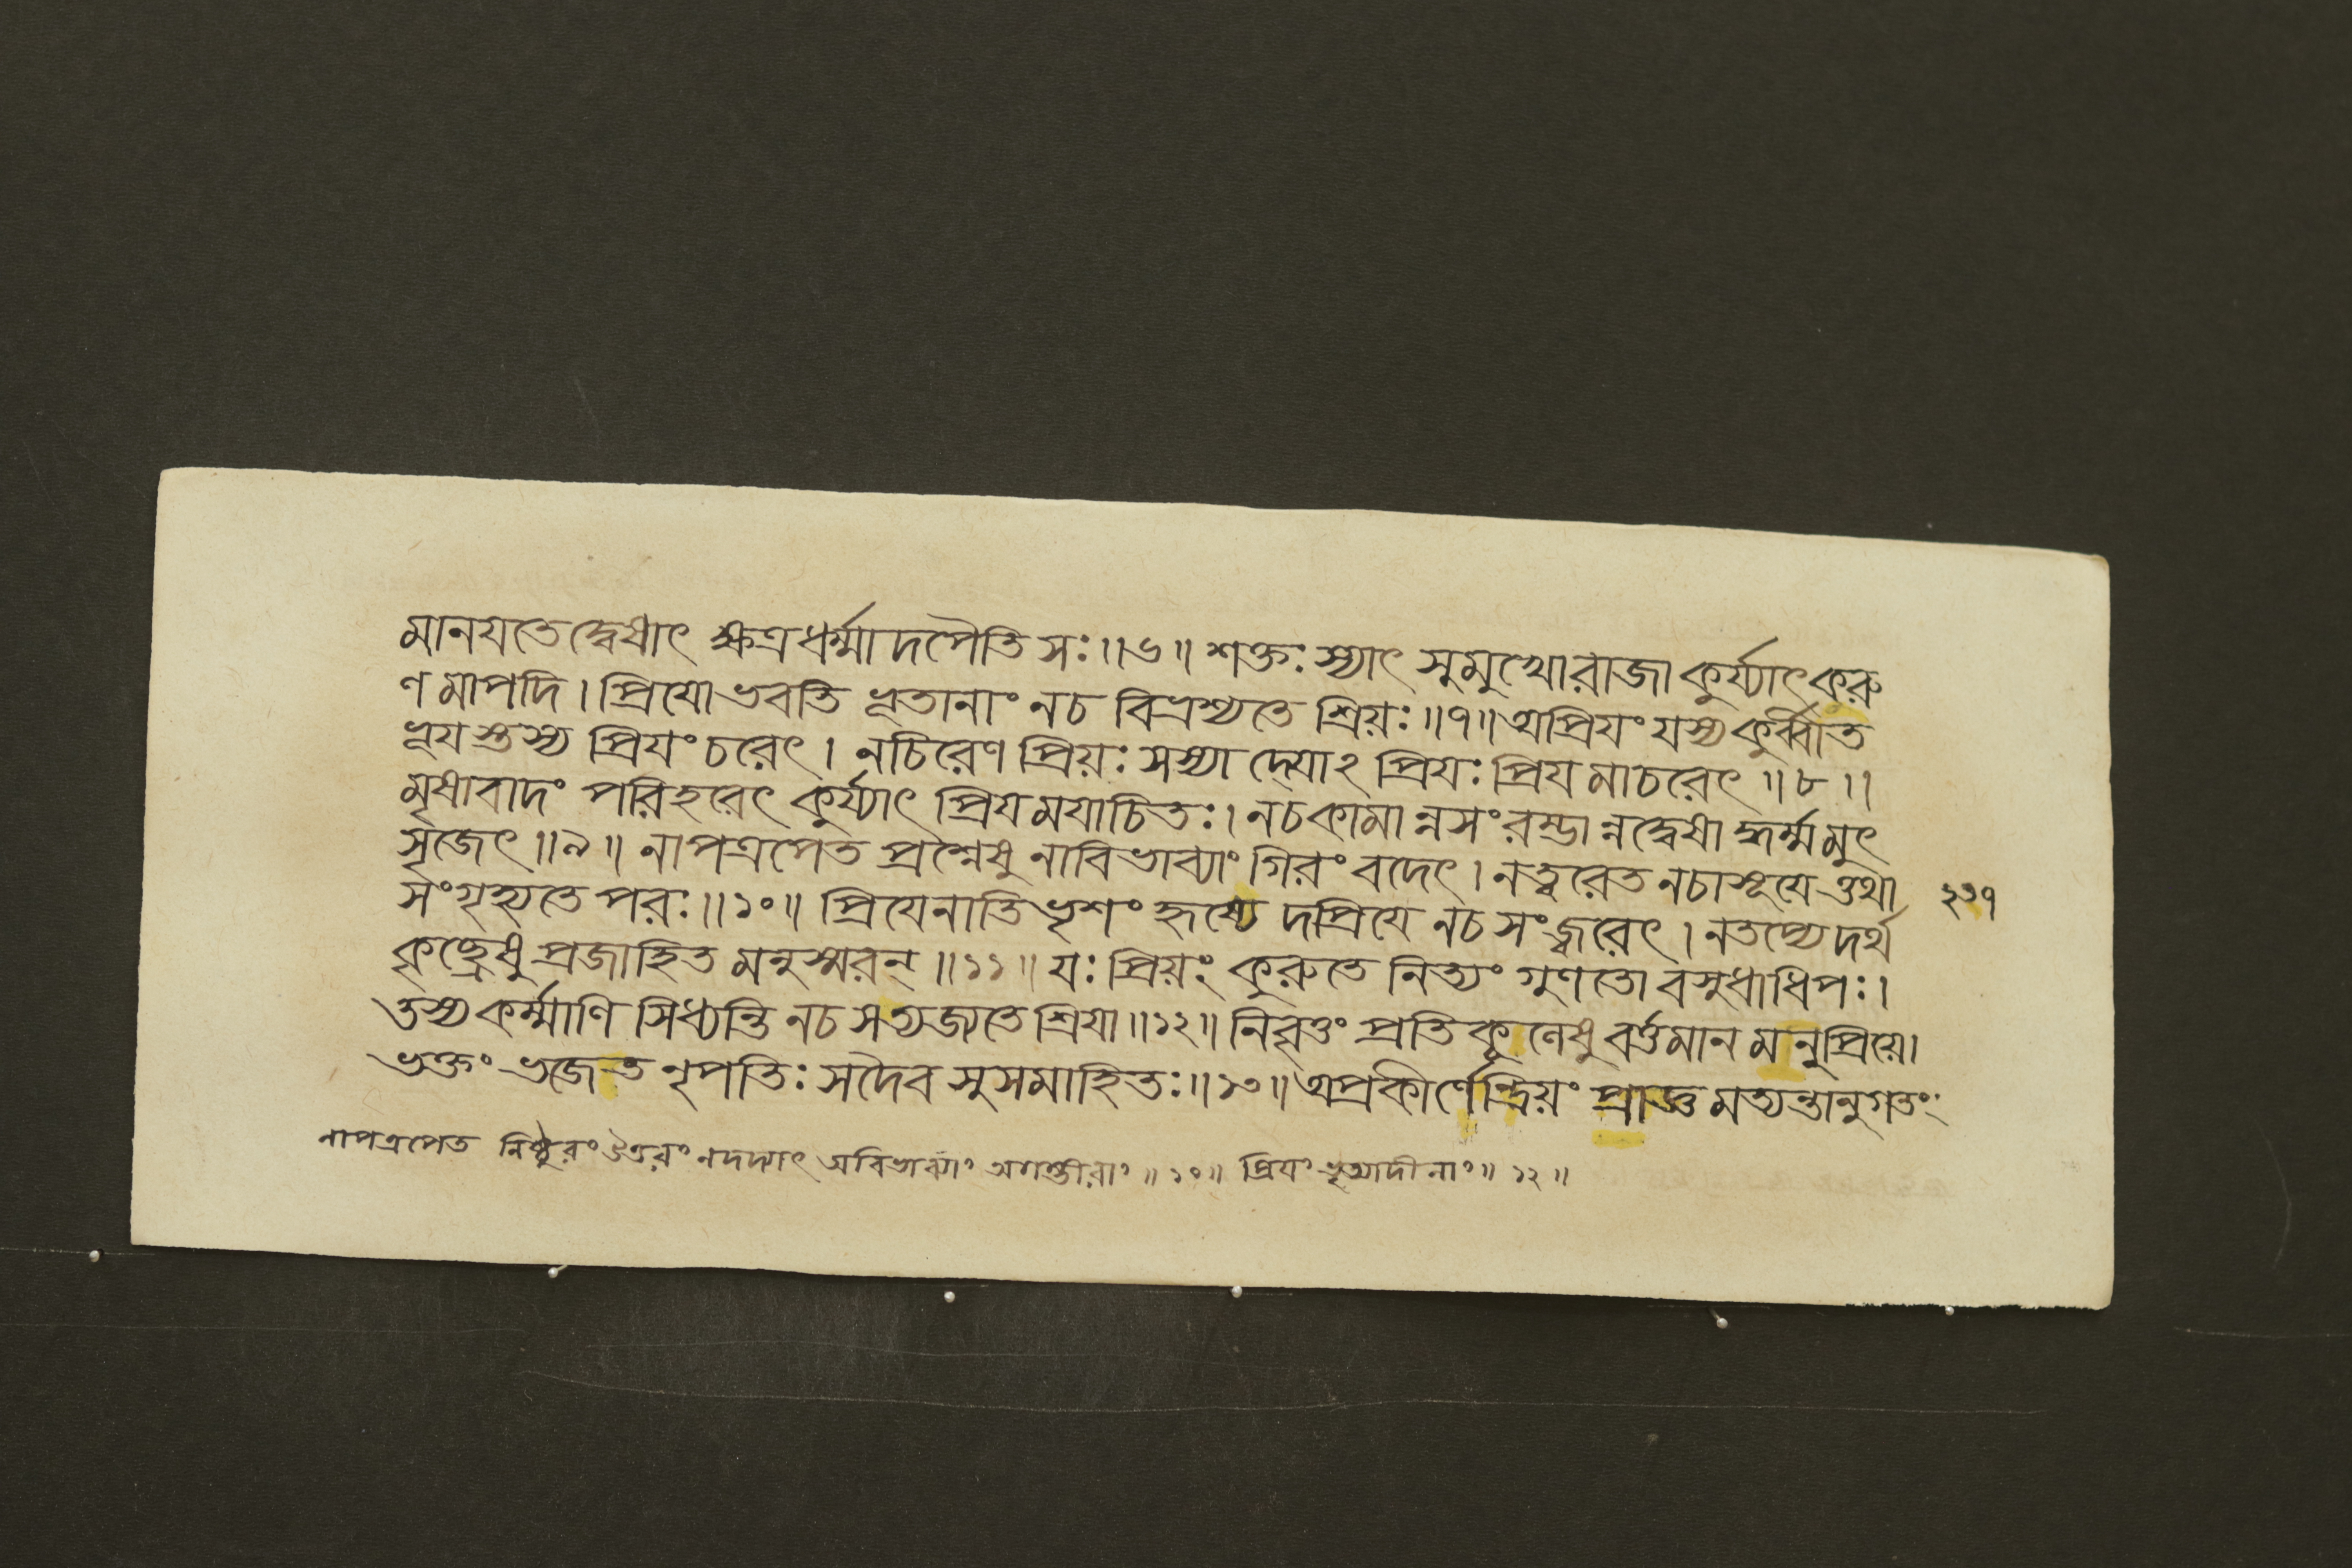 মানযতেদ্বেষাৎ ক্ষত্রধর্ম্মাদপৈতি সঃ॥৬॥ শক্তঃ স্যাৎ সুমুখোরাজা কুর্য্যাৎকরু
ণমাপদি। প্রিযোভবতি ভূতানাং নচ বিভ্রশ্যতে শ্রিয়ঃ॥৭॥অপ্রিযং যস্যকুর্ব্বীত
ভূযস্তস্য প্রিযংচরেৎ। নচিরেণ প্রিয়ঃ সস্যাদ্যোঽ প্রিযঃ প্রিযমাচরেৎ॥৮॥
মৃষাবাদং পরিহরেৎ কুর্য্যাৎ প্রিযমযাচিতঃ। নচকামান্নসংরম্ভান্নদ্বেষাদ্ধর্ম্মমুৎ
সৃজেৎ॥৯॥ নাপত্রপেত প্রশ্নেষু নাবিভাব্যাং গিরং বদেৎ। নত্বরেত নচাসূযেত্তথা
সংগৃহ্যতে পরঃ॥১০॥ প্রিযেনাতিভৃশং হৃষ্যেদপ্রিযে নচ সংজ্বরেৎ। নতপ্যেদর্থ
২৩৭
কৃচ্ছ্রেষু প্রজাহিতমনুস্মরন্॥১১॥ যঃ প্রিয়ং কুরুতে নিত্যং গুণতো বসুধাধিপঃ।
তস্যকর্ম্মাণি সিধ্যন্তি নচ সত্যজ্যতে শ্রিযা॥১২॥ নিবৃত্তং প্রতিকূলেষু বর্ত্তমানমনুপ্রিয়ে।
ভক্তং ভজেত নৃপতিঃ সদৈব সুসমাহিতঃ॥১৩॥ অপ্রকীর্ণেন্দ্রিয়ং প্রাজ্ঞমত্যন্তানুগতং
নাপত্রপেত নিষ্ঠুরং নদদ্যাৎ অবিভাব্যাং অগম্ভীরাং॥১০॥ প্রিযং ভৃত্যাদীনাং॥১২॥